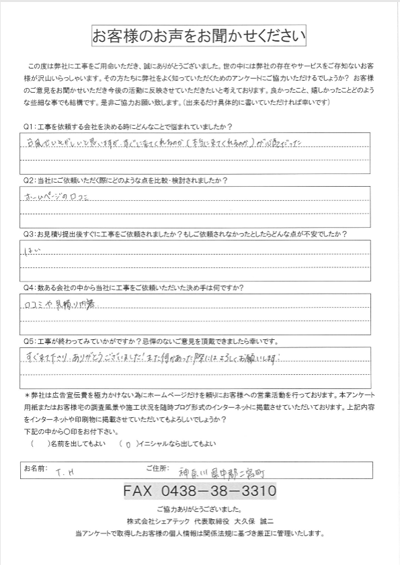 お客様のお声をお聞かせください
この度は弊社に工事をご用命いただき、誠にありがとうございました。世の中には弊社の存在やサービスをご存知ないお客
様が沢山いらっしゃいます。その方たちに弊社をよく知っていただくためのアンケートにご協力いただけるでしょうか？ お客様
のご意見をお聞かせいただき今後の活動に反映させていただきたいと考えております。良かったこと、嬉しかったことどのよう
な些細な事でも結構です。是非ご協力お願い致します。（出来るだけ具体的に書いていただければ幸いです）
Q1：工事を依頼する会社を決める時にどんなことで悩まれていましたか？
すぐに来てくれるのか（本当に来てくれるのか）が心配だった
Q2：当社にご依頼いただく際にどのような点を比較・検討されましたか？
ホームページの口コミ
Q3：お見積り提出後すぐに工事をご依頼されましたか？もしご依頼されなかったとしたらどんな点が不安でしたか？
はい
Q4：数ある会社の中から当社に工事をご依頼いただいた決め手は何ですか？
口コミや見積り内容
Q5：工事が終わってみていかがですか？忌憚のないご意見を頂戴できましたら幸いです。
すぐ来て下さり、ありがとうございました！また何かあった際にはよろしくお願いします！
＊弊社は広告宣伝費を極力かけない為にホームページだけを頼りにお客様への営業活動を行っております。本アンケート
用紙またはお客様宅の調査風景や施工状況を随時ブログ形式のインターネットに掲載させていただいております。上記内容
をインターネットや印刷物に掲載させていただいてもよろしいでしょうか？
下記の中から〇印をお付下さい。
（　）名前を出してもよい （○）イニシャルなら出してもよい
お名前： T.H ご住所： 神奈川県中郡二宮町
FAX 0438－38－3310
ご協力ありがとうございました。
株式会社シェアテック 代表取締役 大久保 誠二
当アンケートで取得したお客様の個人情報は関係法規に基づき厳正に管理いたします。